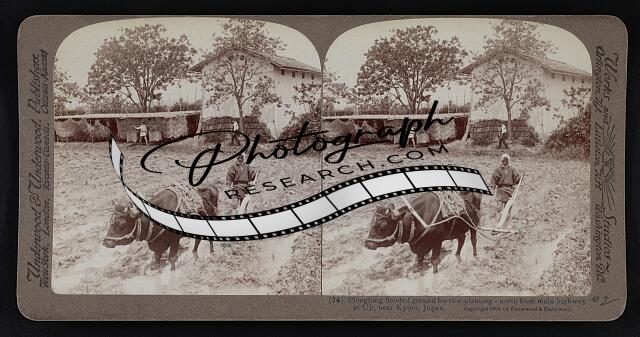 Underwood & Underwood, Publishers.
New York, London, Toronto-Canada, Ottawa-Kansas.
Photograph
RESEARCH.COM
Works and Studios
Arlington, N.J. Littleton, N.H. Washington, D.C.
(74) Ploughing flooded ground for rice-planting—north from main highway
at Uji, near Kyoto, Japan. Copyright 1904 by Underwood & Underwood.